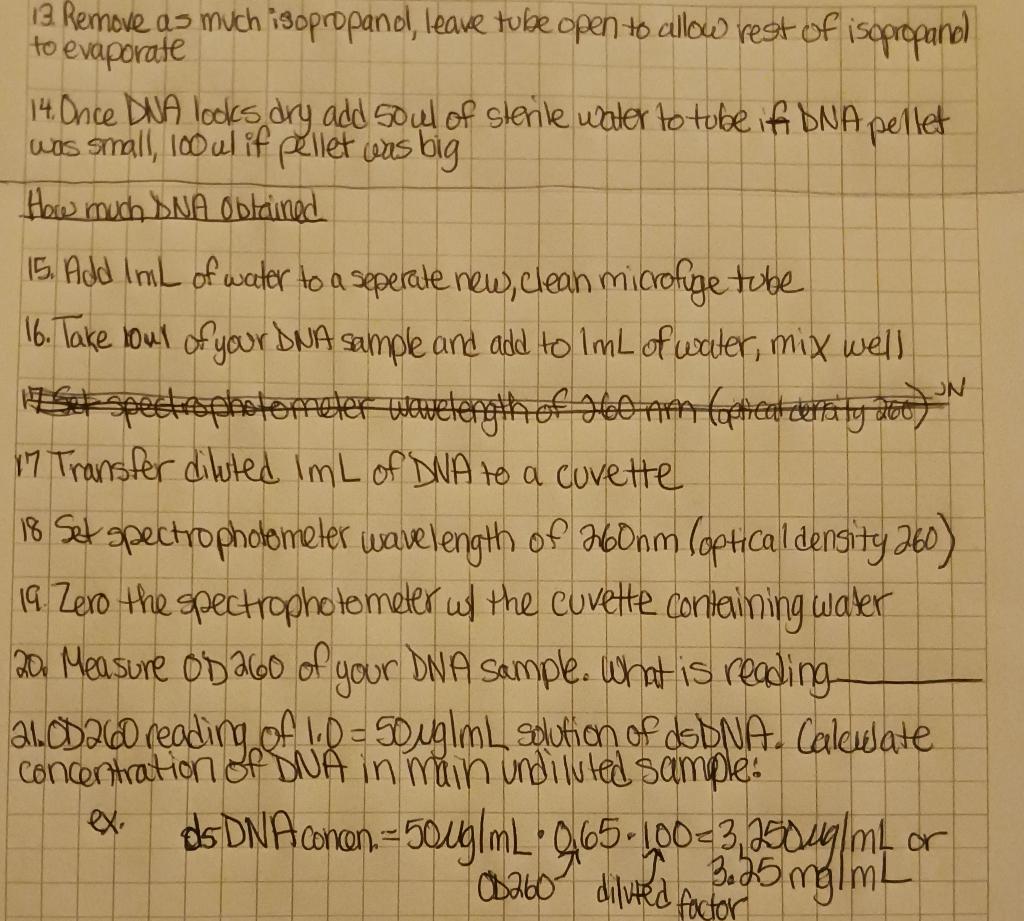 13. Remove as much isopropanol, leave tube open to allow rest of isopropanol
to evaporate
14. Once DNA looks dry add 50ul of sterile water to tube if DNA pellet
was small, 100ul if pellet was big
How much DNA Obtained
15. Add 1mL of water to a seperate new, clean microfuge tube
16. Take 10ul of your DNA sample and add to 1mL of water, mix well
17 Set spectrophotometer wavelength of 260 nm (optical density 260) JN
17 Transfer diluted 1mL of DNA to a cuvette
18 Set spectrophotometer wavelength of 260nm (optical density 260)
19. Zero the spectrophotometer w/ the cuvette containing water
20. Measure OD260 of your DNA sample. What is reading______
21. OD260 reading of 1.0 = 50ug/mL solution of dsDNA. Calculate
concentration of DNA in main undiluted sample:
ex. dsDNA concen. = 50ug/mL · 0.65 · 100 = 3,250ug/mL or
3.25 mg/mL
OD260 diluted factor